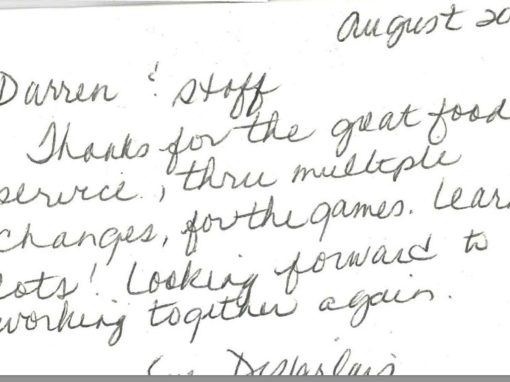 August 20
Darren & Staff
Thanks for the great food
service, thru multiple
changes, for the games. Lear
lots! Looking forward to
working together again.